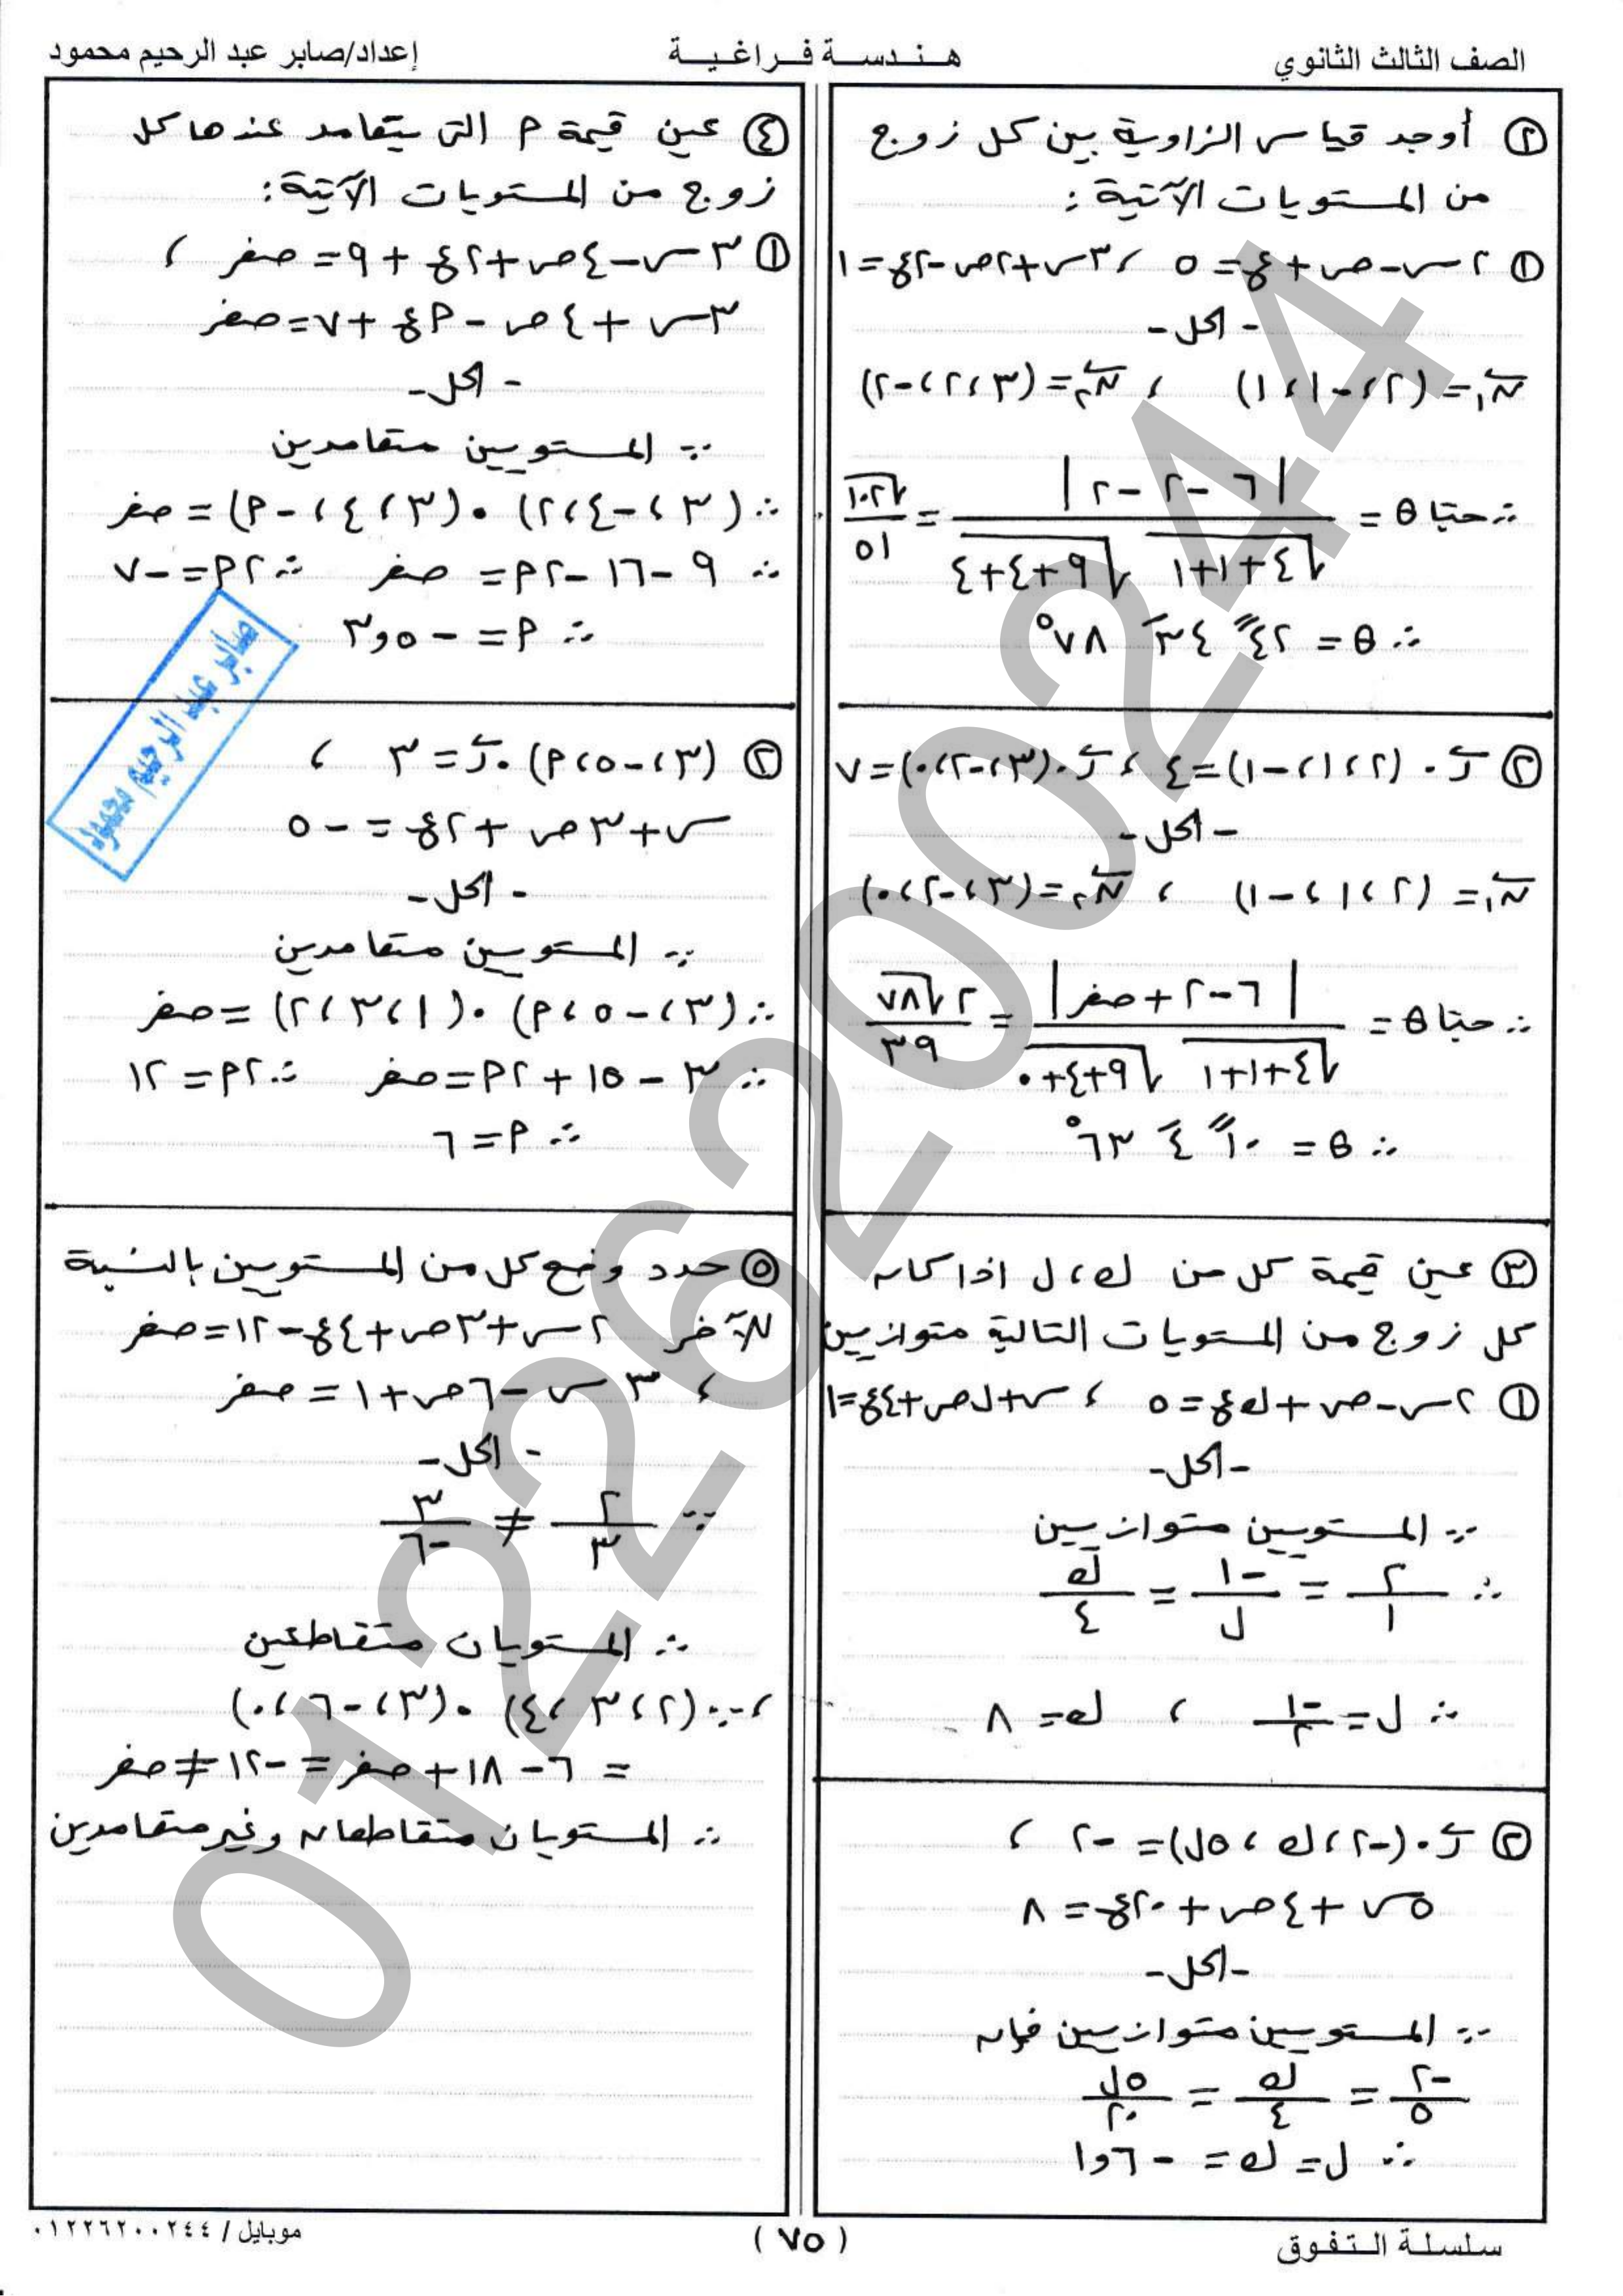 الصف الثالث الثانوي
هندسة فراغية
إعداد/صابر عبد الرحيم محمود
② أوجد قياس الزاوية بين كل زوج
من المستويات الآتية :
① ٢س - ص + ع = ٥ ، ٣س + ٢ص - ٢ع = ١
- الحل -
ن₁ = (٢ ، -١ ، ١) ، ن₂ = (٣ ، ٢ ، -٢)
∴ حتا θ = |٦ - ٢ - ٢| / (√(٤+١+١) √(٩+٤+٤)) = √١٠٢ / ٥١
∴ θ = ٤٢ً ٣٤َ ٧٨°
② ر . (٢ ، ١ ، -١) = ٤ ، ر . (٣ ، -٢ ، ٠) = ٧
- الحل -
ن₁ = (٢ ، ١ ، -١) ، ن₂ = (٣ ، -٢ ، ٠)
∴ حتا θ = |٦ - ٢ + صفر| / (√(٤+١+١) √(٩+٤+٠)) = ٢√٧٨ / ٣٩
∴ θ = ١٠ً ٤َ ٦٣°
③ عين قيمة كل من ك ، ل اذا كان
كل زوج من المستويات التالية متوازيين
① ٢س - ص + ك ع = ٥ ، س + ل ص + ٤ع = ١
- الحل -
∵ المستويين متوازيين
∴ ٢/١ = -١/ل = ك/٤
∴ ل = -١/٢ ، ك = ٨
② ر . (-٢ ، ك ، ٥ل) = -٢ ،
٥س + ٤ص + ٢٠ع = ٨
- الحل -
∵ المستويين متوازيين فإن
-٢/٥ = ك/٤ = ٥ل/٢٠
∴ ل = ك = -١٫٦
④ عين قيمة م التى يتعامد عندها كل
زوج من المستويات الآتية :
① ٣س - ٤ص + ٢ع + ٩ = صفر ،
٣س + ٤ص - م ع + ٧ = صفر
- الحل -
∵ المستويين متعامدين
∴ (٣ ، -٤ ، ٢) . (٣ ، ٤ ، -م) = صفر
∴ ٩ - ١٦ - ٢م = صفر ∴ ٢م = -٧
∴ م = -٣٫٥
صابر عبد الرحيم محمود
② (٣ ، -٥ ، م) . ر = ٣ ،
س + ٣ص + ٢ع = -٥
- الحل -
∵ المستويين متعامدين
∴ (٣ ، -٥ ، م) . (١ ، ٣ ، ٢) = صفر
∴ ٣ - ١٥ + ٢م = صفر ∴ ٢م = ١٢
∴ م = ٦
⑤ حدد وضع كل من المستويين بالنسبة
للآخر ٢س + ٣ص + ٤ع - ١٢ = صفر
، ٣س - ٦ص + ١ = صفر
- الحل -
∵ ٢/٣ ≠ ٣/-٦
∴ المستويان متقاطعين
، ∵ (٢ ، ٣ ، ٤) . (٣ ، -٦ ، ٠)
= ٦ - ١٨ + صفر = -١٢ ≠ صفر
∴ المستويان متقاطعان وغير متعامدين
01226200244
سلسلة التفوق
( ٧٥ )
موبايل / ٠١٢٢٦٢٠٠٢٤٤